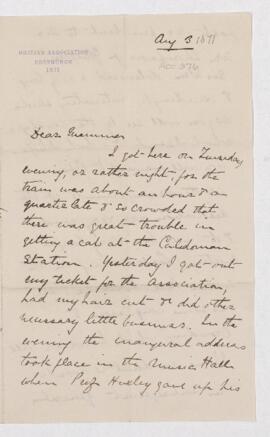 BRITISH ASSOCIATION
EDINBURGH
1871
Aug 3 1871
Dear Mamma
I got here on Tuesday
evening, or rather night, for the
train was about an hour & a
quarter late & so crowded that
there was great trouble in
getting a cab at the Caledonian
Station. Yesterday I got out
my ticket for the Association,
had my hair cut & did other
necessary little business. In the
evening the inaugural address
took place in the Music Hall
when Prof Huxley gave up his